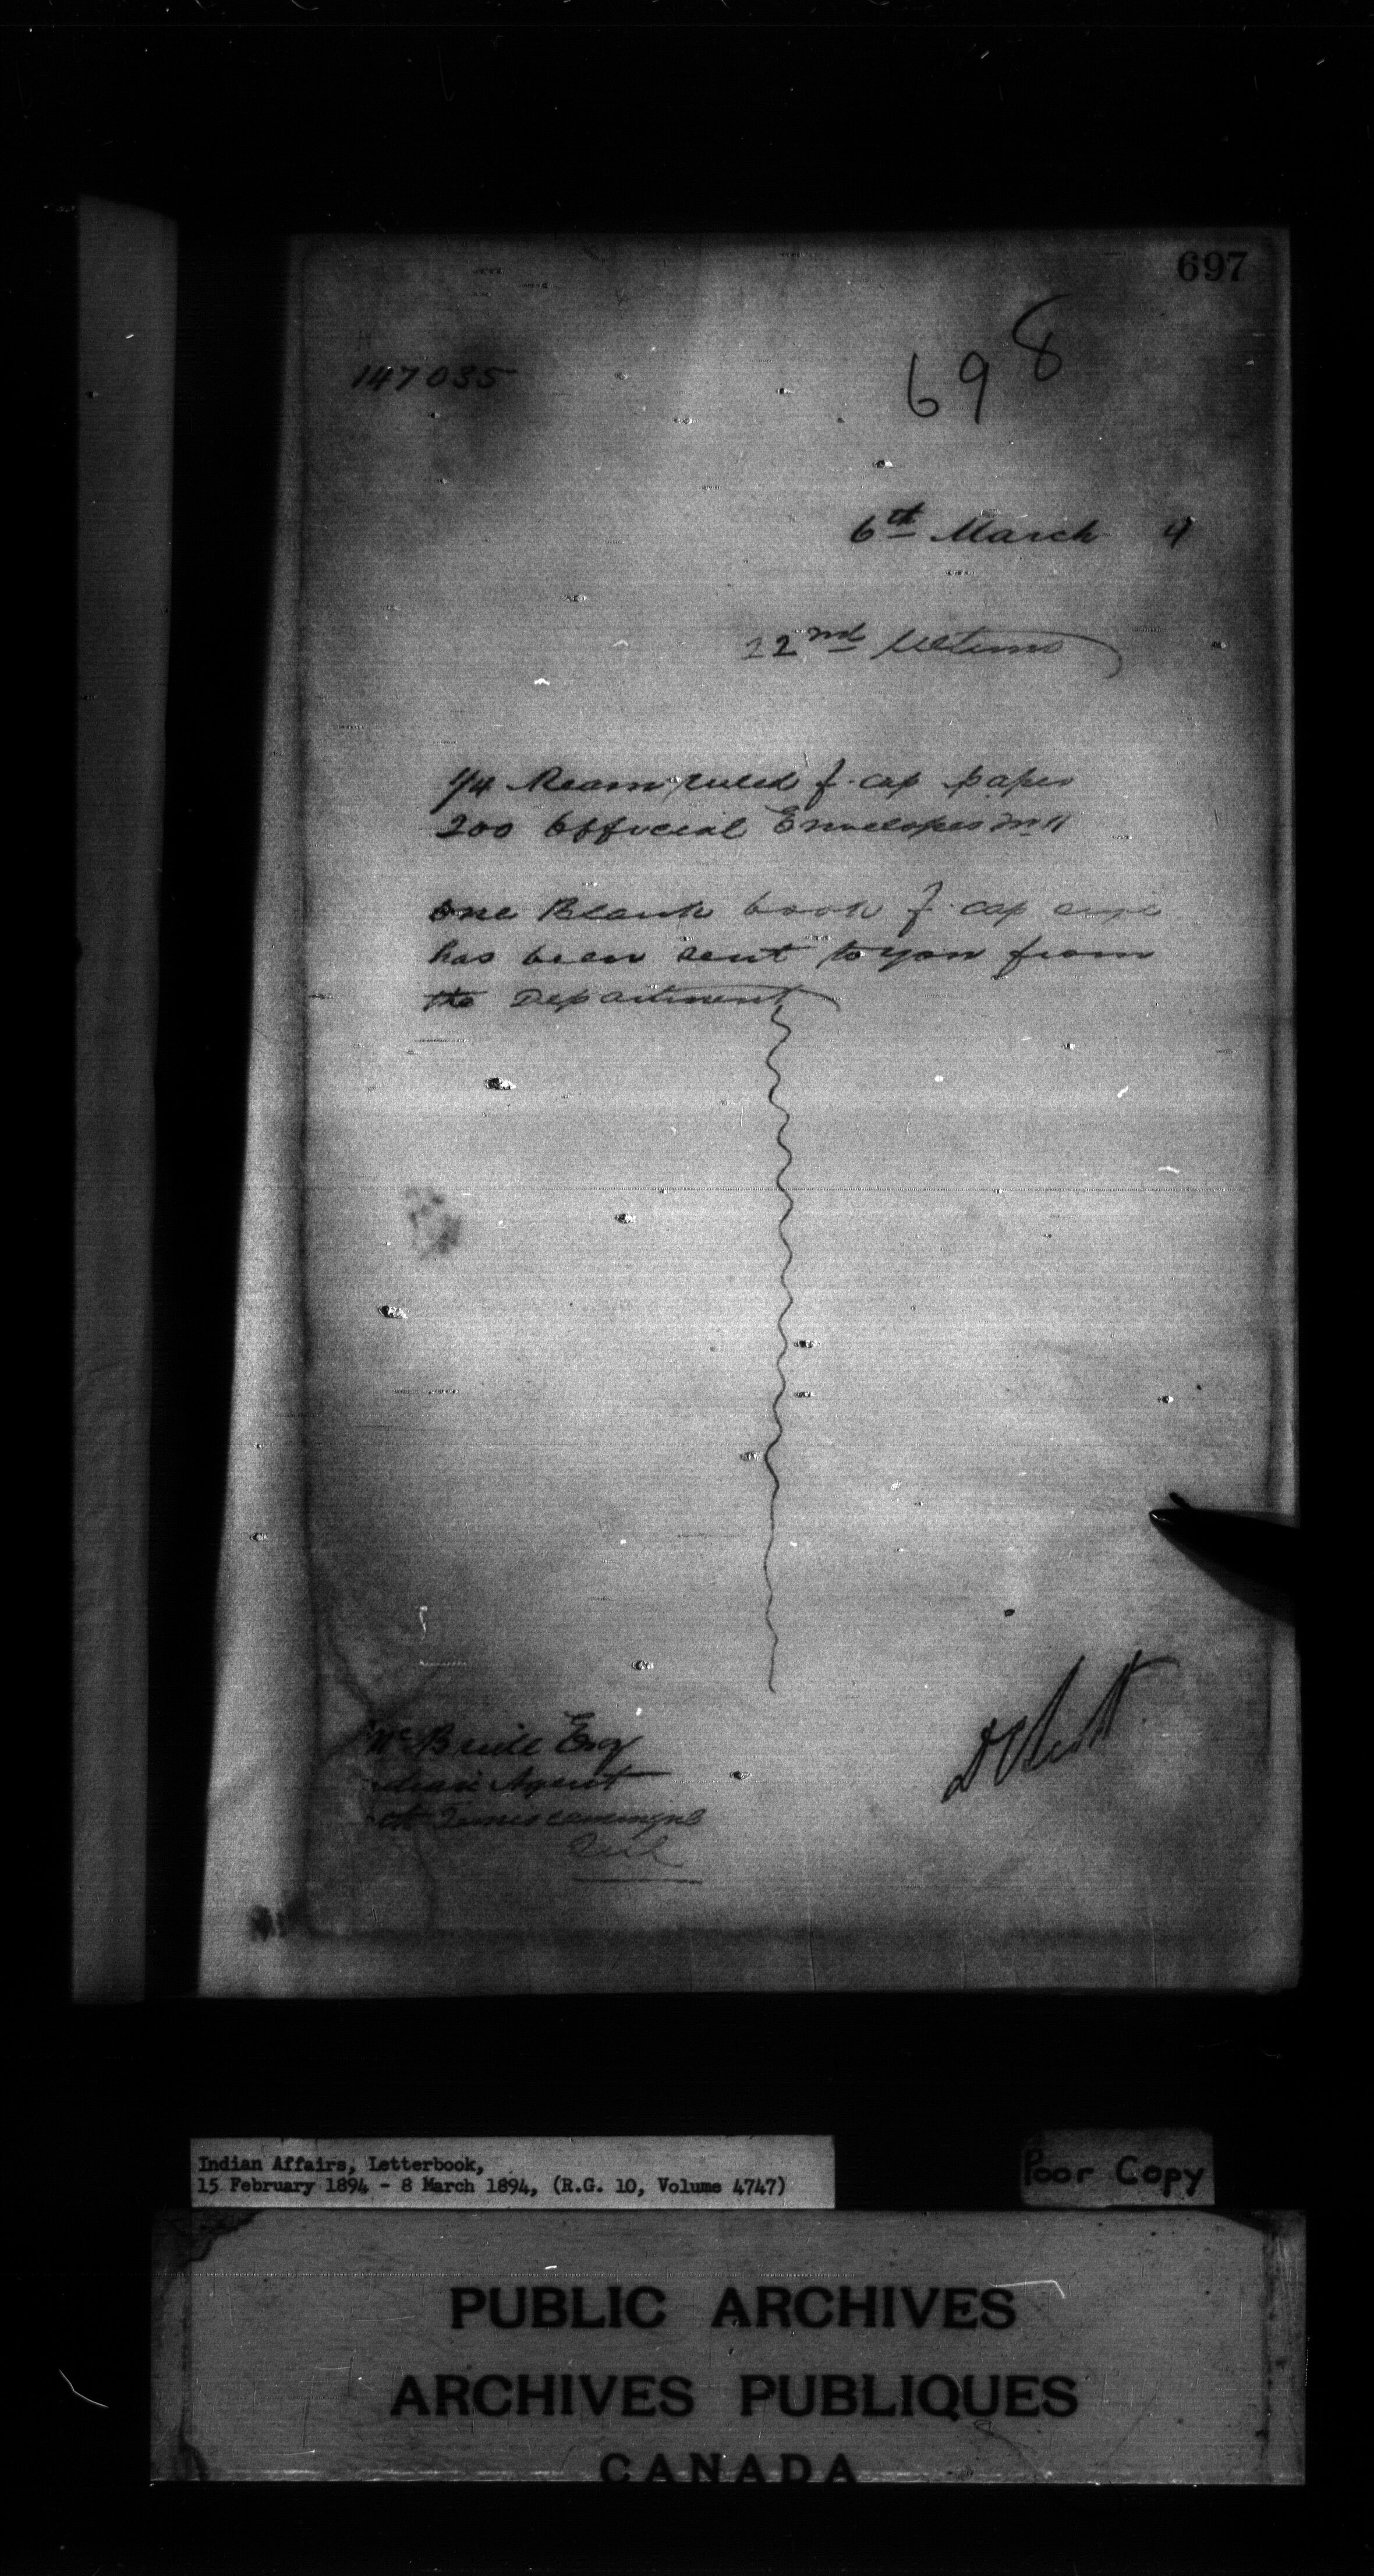 697
147035
698
6th March 4
22nd Ultimo
1/4 Ream ruled f. cap paper
200 Official Envelopes No 11
One Blank book f. cap size
has been sent to you from
the Department
McBride Esq
dian Agent
th Temiscamingue
Que
Indian Affairs, Letterbook,
15 February 1894 - 8 March 1894, (R.G. 10, Volume 4747)
Poor Copy
PUBLIC ARCHIVES
ARCHIVES PUBLIQUES
CANADA